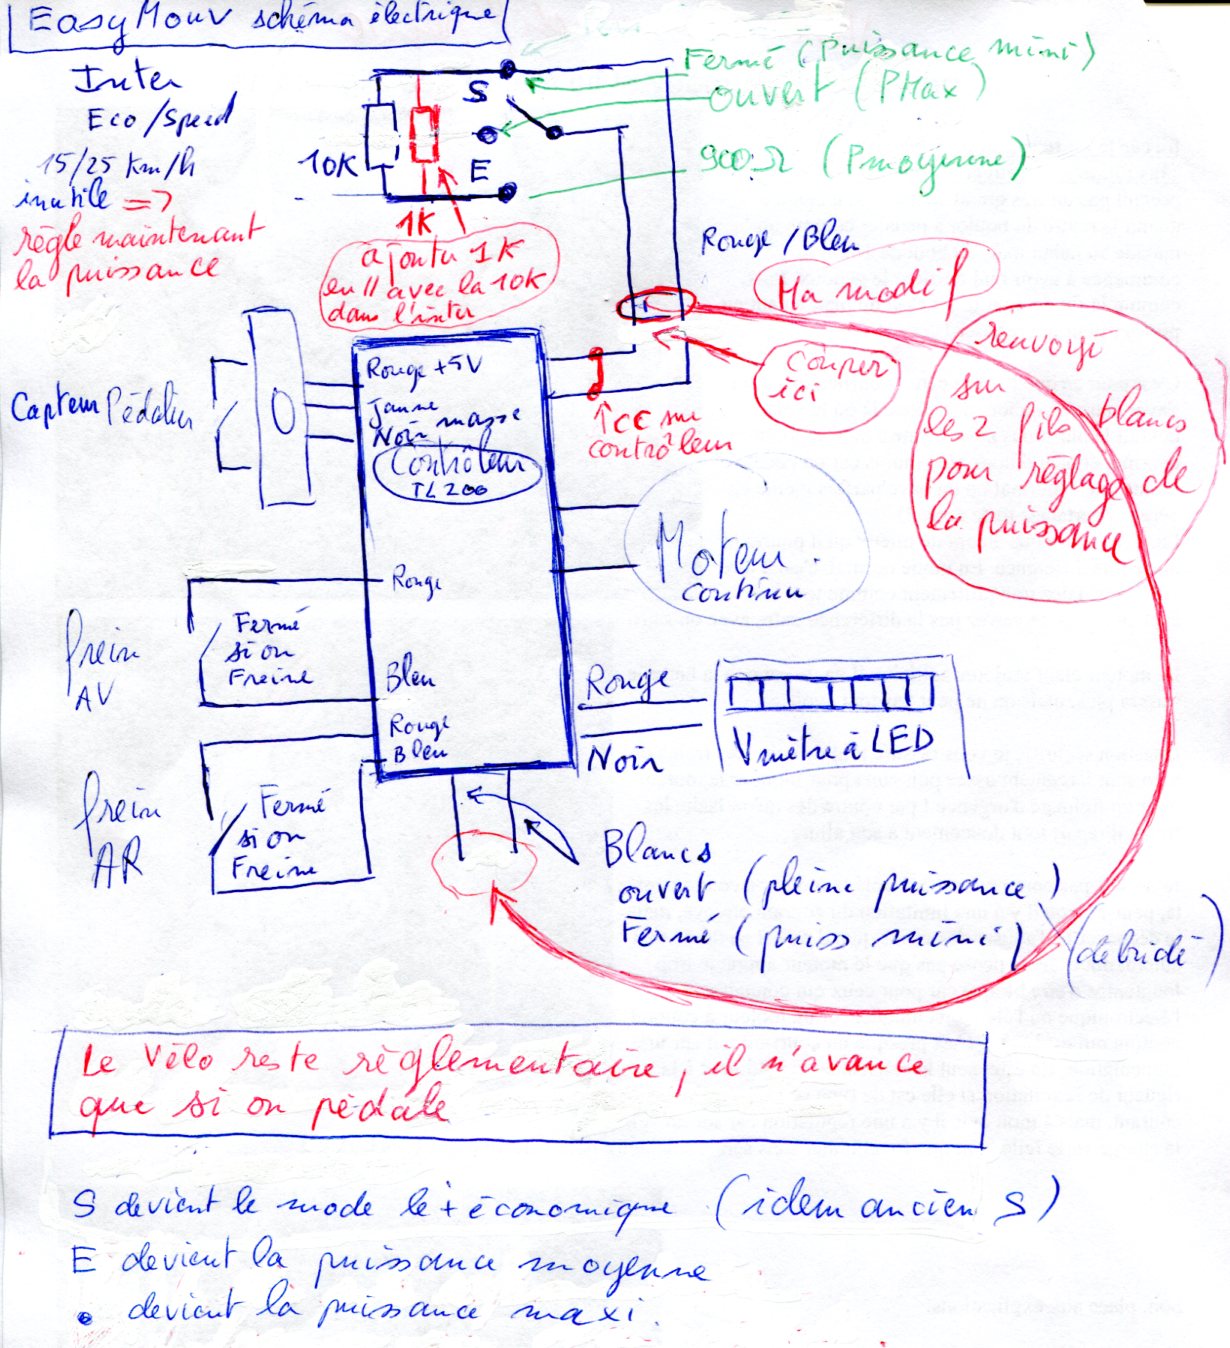 EasyMouv schéma électrique
Inter
Eco/Speed
15/25 Km/h
inutile =>
règle maintenant
la puissance
10K
1K
S
E
Fermé (Puissance mini)
ouvert (PMax)
900Ω (Pmoyenne)
ajouter 1K
en // avec la 10K
dans l'inter
Rouge/Bleu
Ma modif
Couper
ici
renvoyé
sur
les 2 fils blancs
pour réglage de
la puissance
CC sur
contrôleur
Capteur Pédalier
Rouge +5V
Jaune
Noir masse
Contrôleur
TL200
Moteur
continu
Rouge
Frein
AV
Fermé
si on
Freine
Bleu
Rouge
Bleu
Frein
AR
Fermé
si on
Freine
Rouge
Noir
Vmètre à LED
Blancs
ouvert (pleine puissance)
Fermé (puiss mini)
(débridé)
Le Vélo reste règlementaire, il n'avance
que si on pédale
S devient le mode le + économique (idem ancien S)
E devient la puissance moyenne
• devient la puissance maxi.